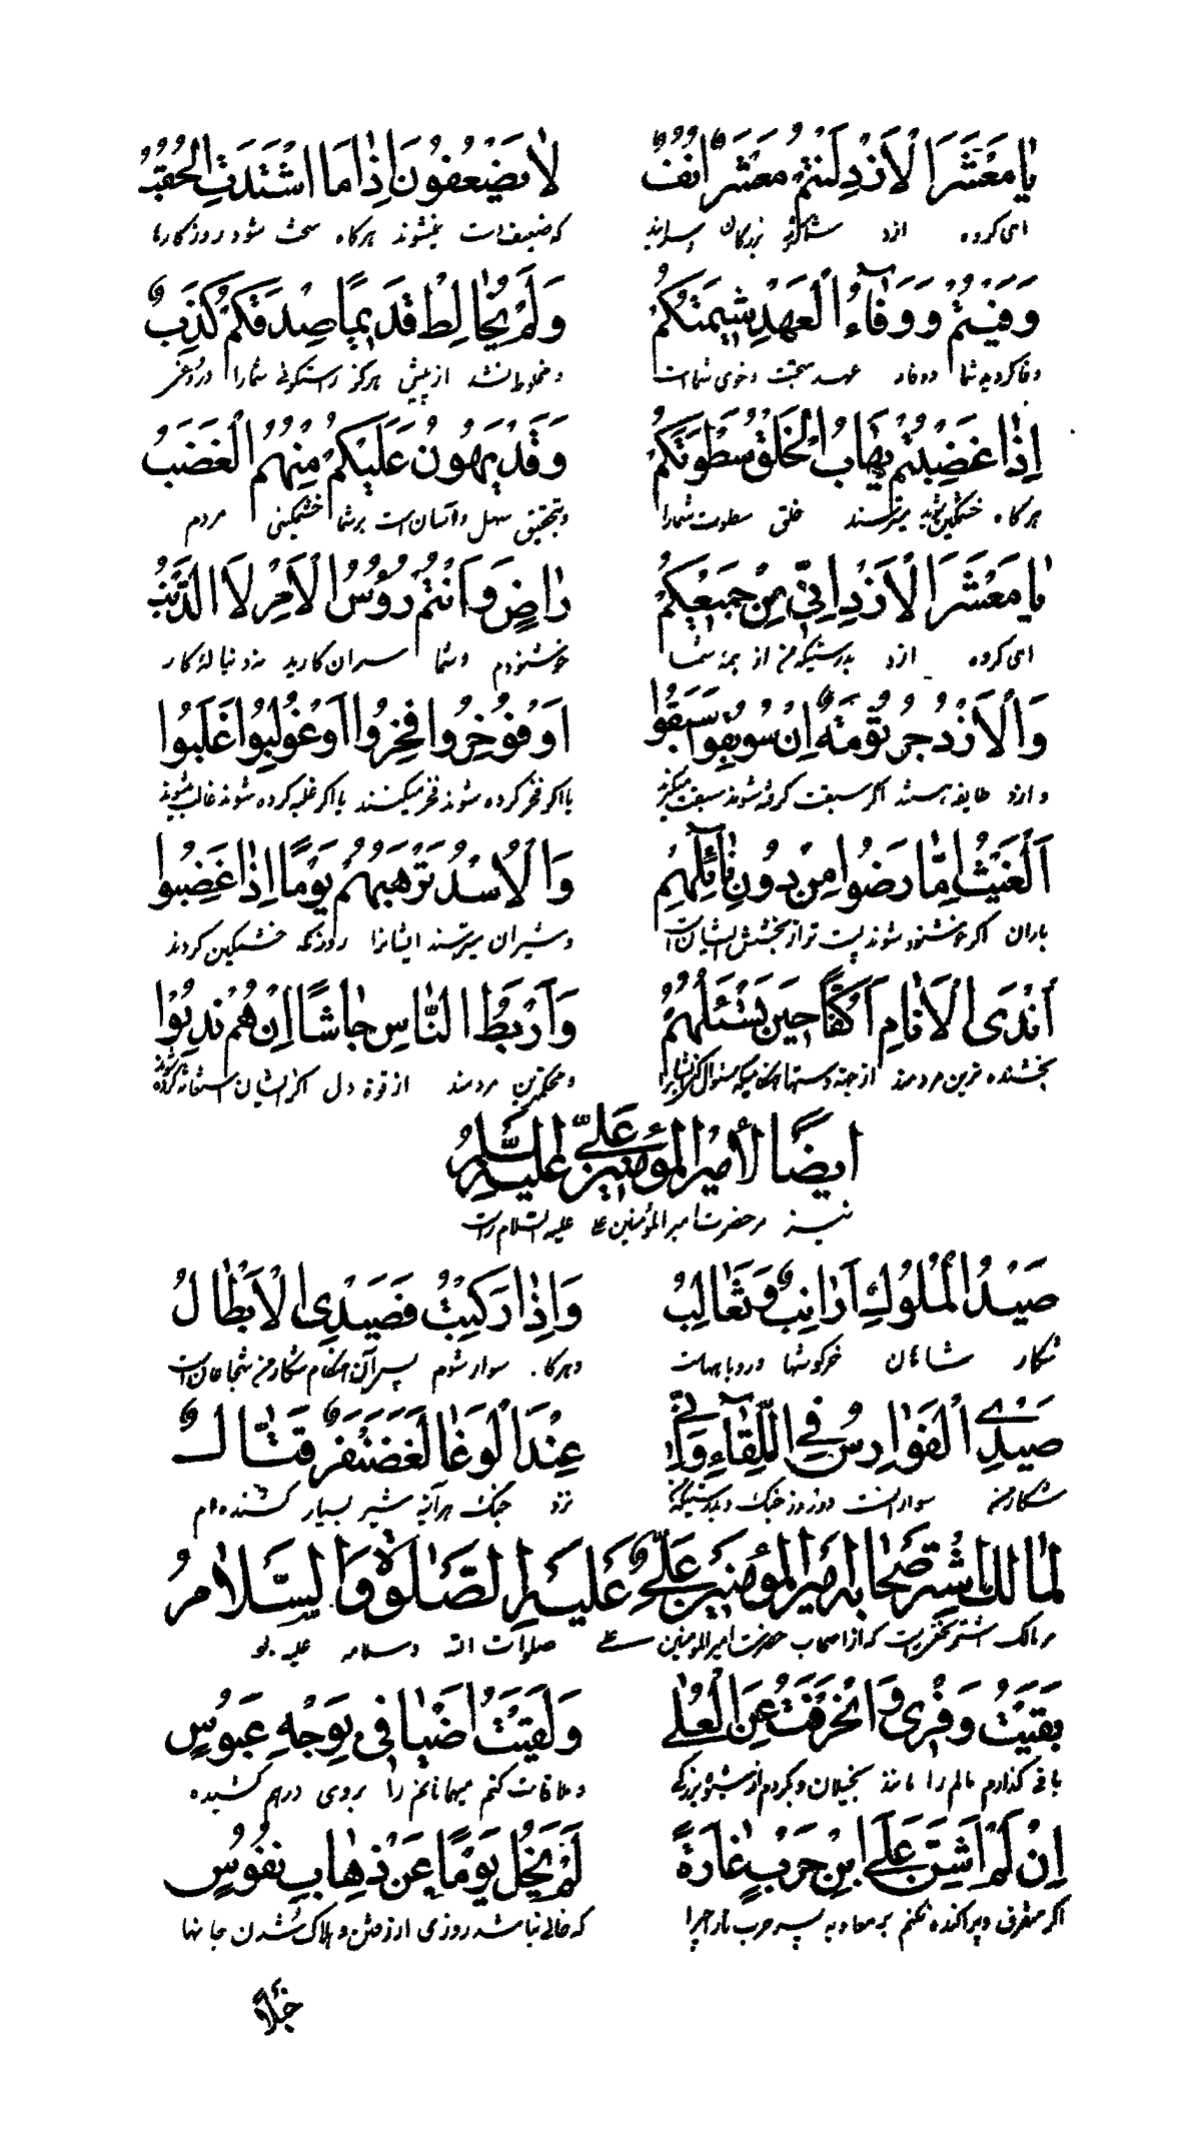 يا مَعْشَرَ الْاَزْدِ لَنْتُمْ مَعْشَرٌ اُنُفٌ لا يَضْعُفُونَ اِذا مَا اشْتَدَّتِ الْحُقُبُ
ای گروه ازد شما گروه بزرگان که ضعیف نمیشوند هرگاه سخت شود روزگارها
وَفَيْتُمُ وَوَفآءُ الْعَهْدِ شِيمَتُكُمْ وَلَمْ يُخالِطْ قَديماً صِدْقَكُمْ كَذِبٌ
وفا کردید شما و وفاء عهد وخوی شما است و مخلوط نشد از پیش هرگز راستگوئی شما را
اِذا غَضِبْتُمْ يَهابُ الْخَلْقُ سَطْوَتَكُمْ وَقَدْ يَهُونُ عَلَيْكُمْ مِنْهُمُ الْغَضَبُ
هرگاه خشمگین شوید میترسند خلق سطوت شما را وبتحقیق سهل و آسان است بر شما خشمگینی مردم
يا مَعْشَرَ الْاَزْدِ اِنّي مِنْ جَميعِكُمُ راضٍ وَاَنْتُمْ رُؤُسُ الْاَمْرِ لاَ الذَّنَبُ
ای گروه ازد بدرستیکه من از همه شما خوشنودم وشما سران کارید نه دنباله کار
وَالْاَزْدُ جُرْثُومَةٌ اِنْ سُوبِقُوا سَبَقُوا اَوْ فُوخِرُوا فَخِرُوا اَوْ غُولِبُوا غَلَبُوا
وازد طایفه هستند اگر سبقت کرده شوند سبقت میگیرند یا اگر فخر کرده شوند فخر میکنند یا اگر غلبه کرده شوند غالب میشوند
اَلْغَيْثُ اِمّا رَضُوا مِنْ دُونِ نآئِلِهِمِ وَالْاُسْدُ تَرْهَبُهُمْ يَوْماً اِذا غَضِبُوا
باران اگر خوشنود شوند پست تر از بخشش ایشان است وشیران میترسند ایشانرا روزیکه خشمگین گردند
اَنْدَى الْاَنامِ اَكُفّاً حينَ تَسْئَلُهُمْ وَاَرْبَطُ النّاسِ جاشاً اِنْ هُمْ نُدِبُوا
بخشنده ترین مردمند از جهة دستها هنگامیکه سؤال کنی ایشانرا ومحکمترین مردمند از قوة دل اگر ایشان استغاثه کرده شوند
ايضاً لأميرالمؤمنين عليّ عليه السّلام
نیز مر حضرت امیرالمؤمنین علی علیه السّلام راست
صَيْدُ الْمُلُوكِ اَرانِبٌ وَثَعالِبُ وَاِذا رَكِبْتُ فَصَيْدِيَ الْاَبْطالُ
شکار شاهان خرگوشها وروباههاست وهرگاه سوار شوم پس آن هنگام شکار من شجاعان است
صَيْدِي الْفَوارِسُ فِي اللِّقآءِ وَاِنَّني عِنْدَ الْوَغا لَغَضَنْفَرٌ قَتّالٌ
شکار من سوارانست در روز جنگ وبدرستیکه نزد جنگ هرآینه شیر بسیار کشنده‌ام
لمالك اشتر صحابه اميرالمؤمنين عليّ عليه الصّلوة والسّلام
مر مالک اشتر نخعی راست که از اصحاب حضرت امیرالمؤمنین علی صلوات الله وسلامه علیه بود
بَقَيْتُ وَفْري وَانْحَرَفْتُ عَنِ الْعُلى وَلَقيتُ اَضْيافي بِوَجْهِ عَبُوسٍ
باقی گذارم مالم را مانند بخیلان وبگردم از شیوه بزرگی وملاقات کنم میهمانانم را بروی درهم کشیده
اِنْ لَمْ اَشُنَّ عَلَى ابْنِ حَرْبٍ غارَةً لَمْ يَخْلُ يَوْماً عَنْ ذِهابِ نُفُوسٍ
اگر متفرق وپراکنده نکنم بر معاویه پسر حرب که خالی نباشد روزی از رفتن وهلاک شدن جانها
خَيْلاً